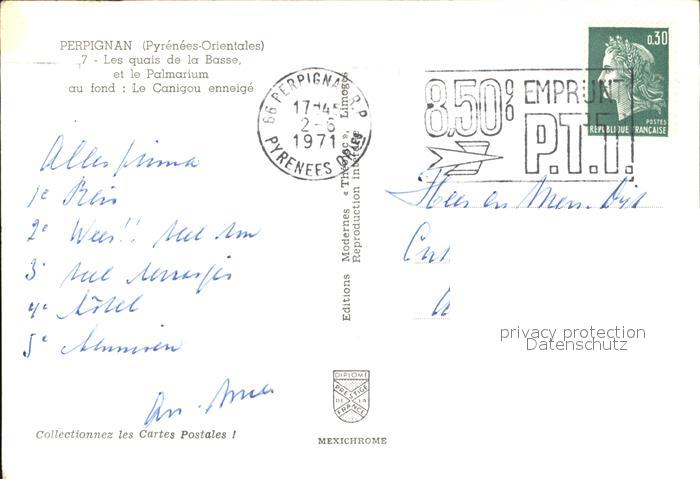 PERPIGNAN (Pyrénées-Orientales)
7 - Les quais de la Basse,
et le Palmarium
au fond : Le Canigou enneigé
0,30
POSTES
REPUBLIQUE FRANÇAISE
66 PERPIGNAN R.P.
17H45
2-6
1971
PYRENEES
8,50%
EMPRUNT
P.T.T.
Alles prima
1e Reis
2e Weer!! veel zon
3e veel terrasjes
4e Hôtel
5e
Heer en Mevr.
Editions Modernes « Théojac », Limoges
Reproduction Interdite
privacy protection
Datenschutz
DIPLOME
PRESTIGE
DE LA
FRANCE
Collectionnez les Cartes Postales !
MEXICHROME